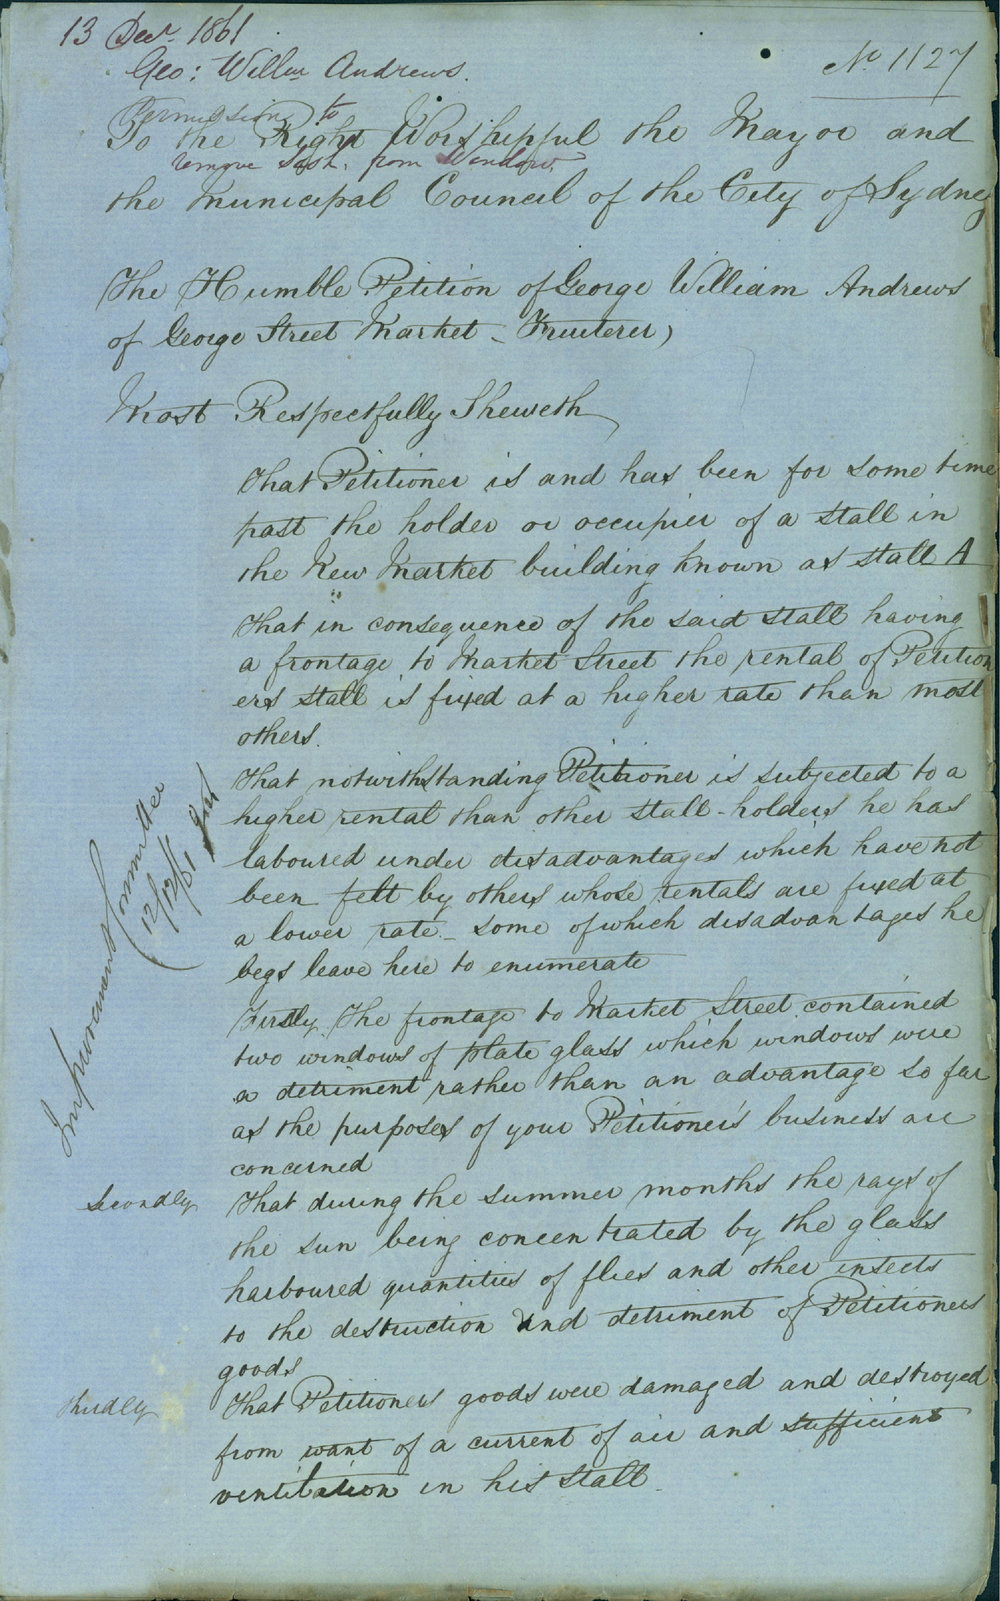 13 Decr. 1861
Geo: Willm Andrews.
No 1127
Permission to
remove Sash. from Window.
To the Right Worshipful the Mayor and
the Municipal Council of the City of Sydney
The Humble Petition of George William Andrews
of George Street Market - Fruiterer,
Most Respectfully Sheweth
That Petitioner is and has been for some time
past the holder or occupier of a stall in
the New Market building known as stall A
That in consequence of the said stall having
a frontage to Market Street the rental of Petition
ers stall is fixed at a higher rate than most
others.
That notwithstanding Petitioner is subjected to a
higher rental than other stall-holders he has
laboured under disadvantages which have not
been felt by others whose rentals are fixed at
a lower rate - some of which disadvantages he
begs leave here to enumerate
Improvement Committee
12/12/61
Firstly The frontage to Market Street contained
two windows of plate glass which windows were
a detriment rather than an advantage so far
as the purposes of your Petitioner's business are
concerned
Secondly That during the summer months the rays of
the sun being concentrated by the glass
harboured quantities of flies and other insects
to the destruction and detriment of Petitioners
goods
Thirdly That Petitioners goods were damaged and destroyed
from want of a current of air and sufficient
ventilation in his stall.